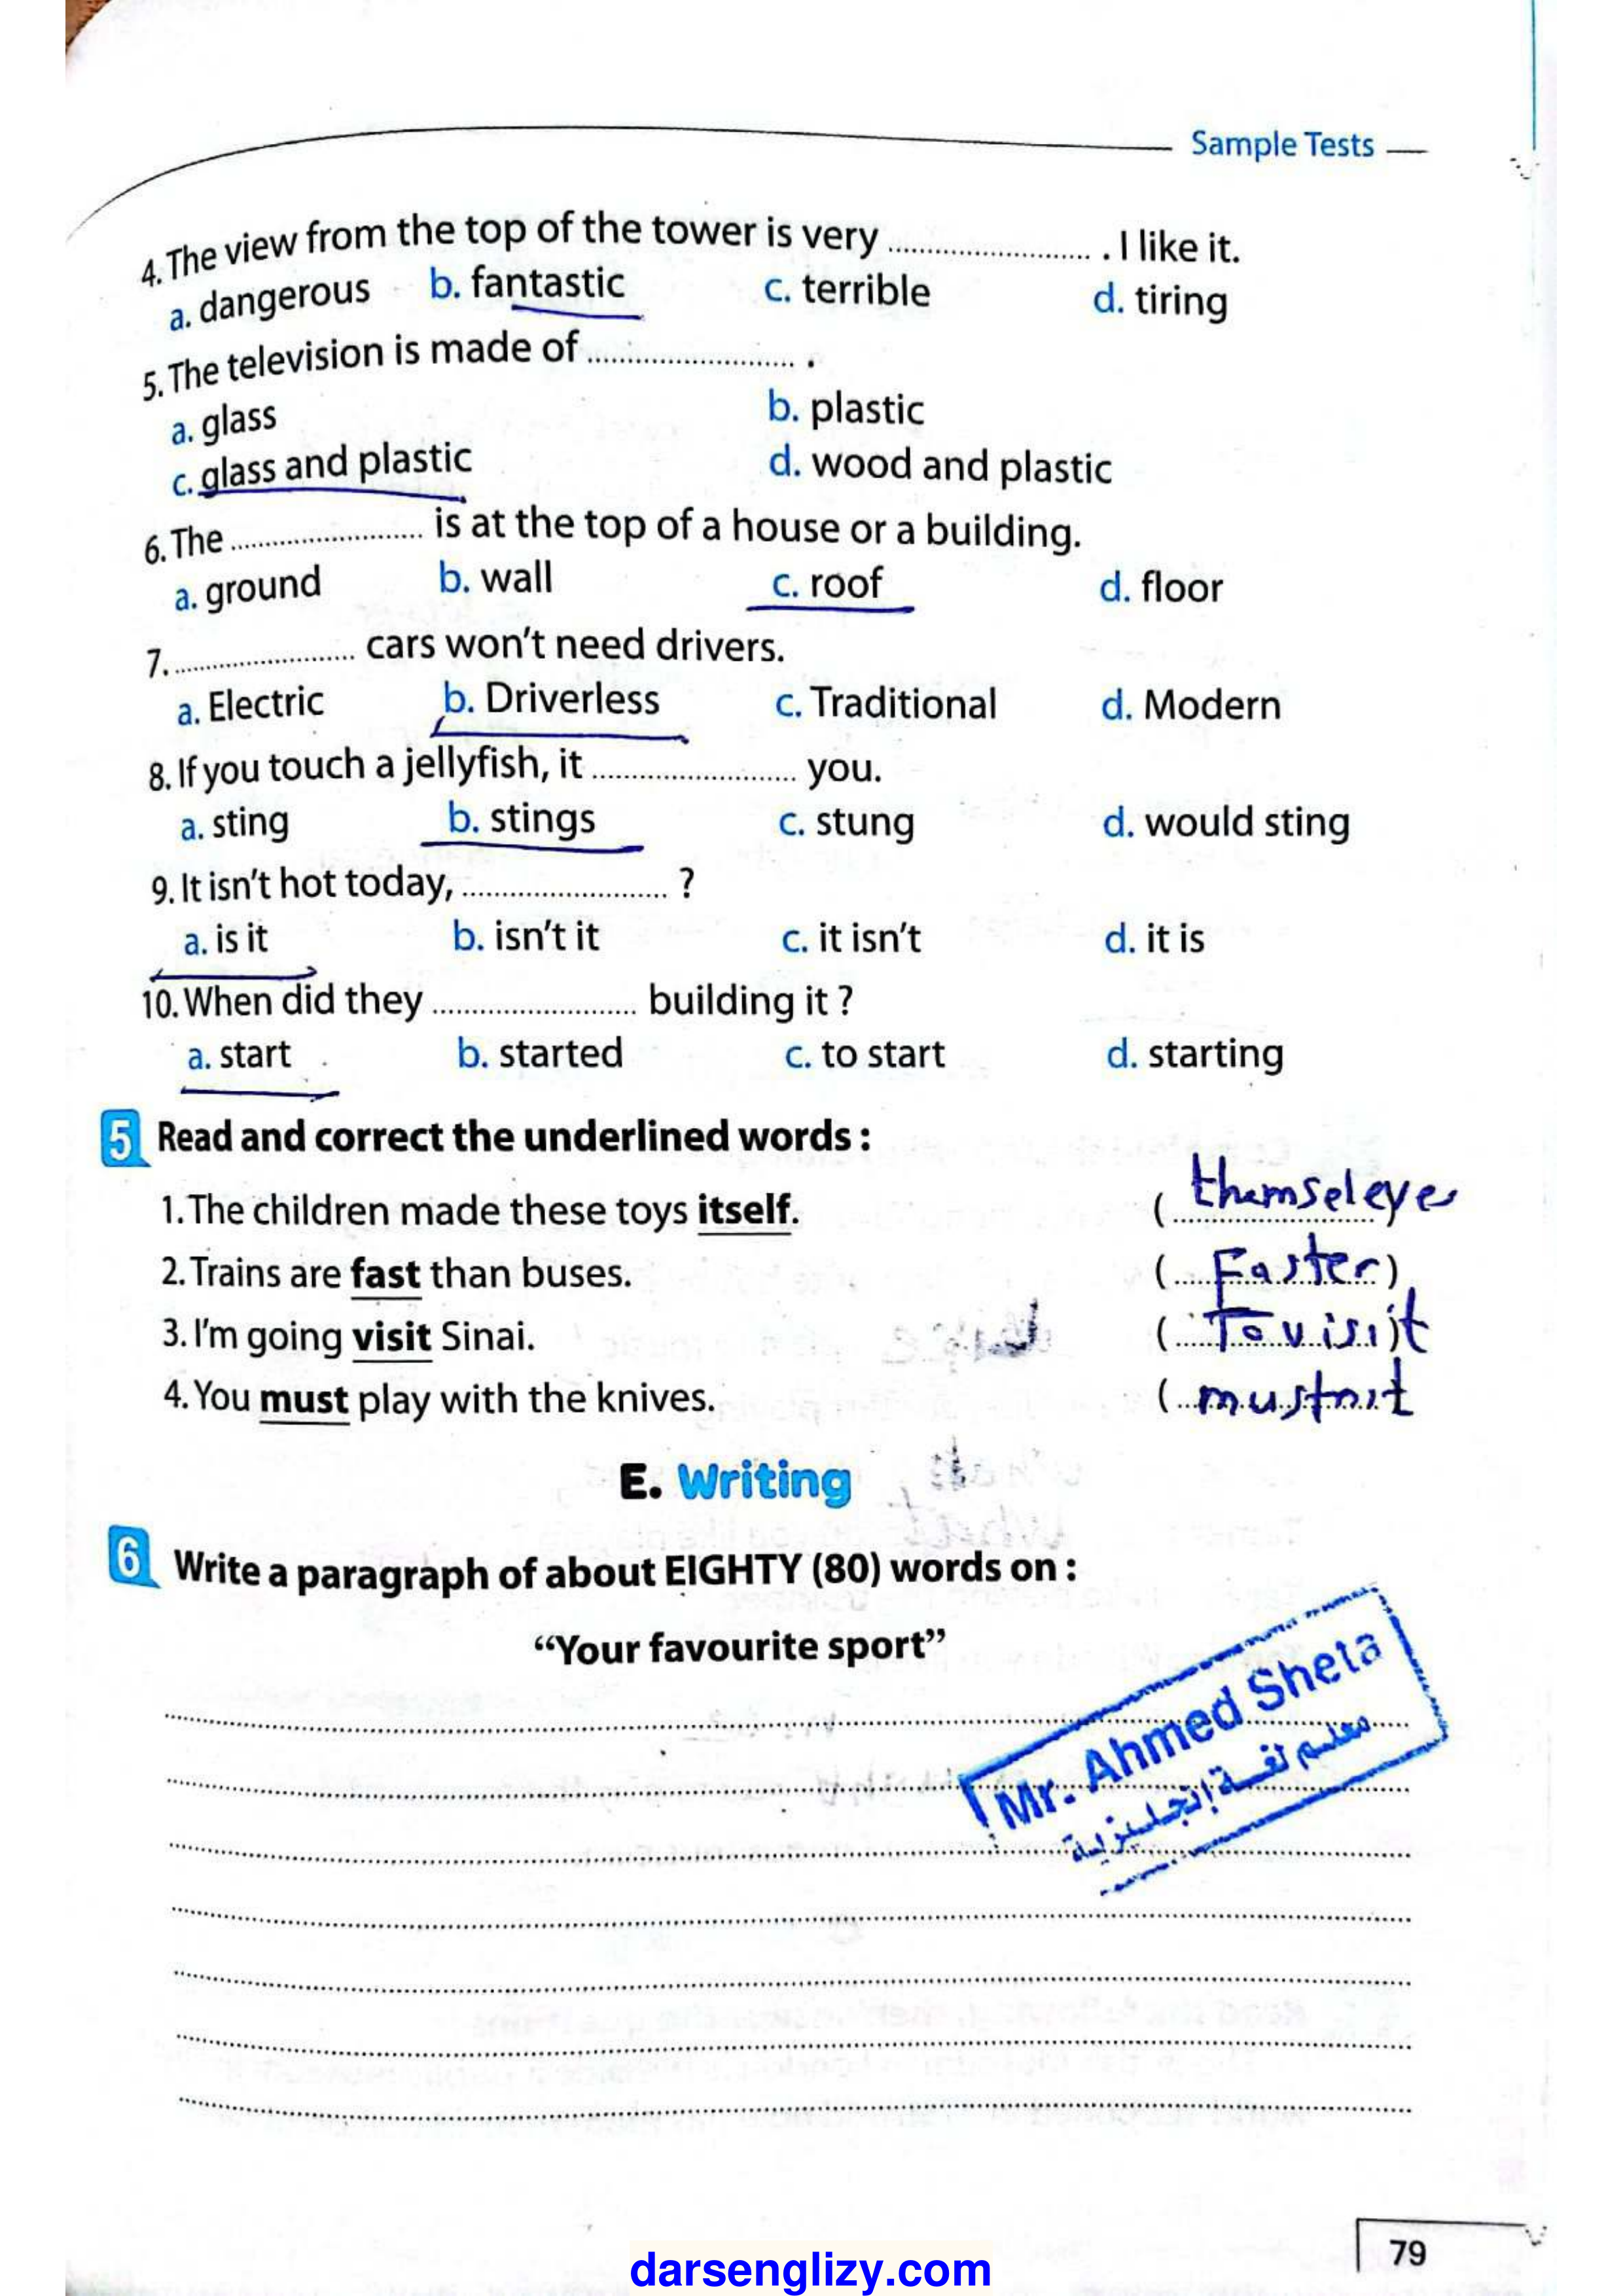 Sample Tests
4. The view from the top of the tower is very ........................ . I like it.
a. dangerous b. fantastic c. terrible d. tiring
5. The television is made of ........................ .
a. glass b. plastic
c. glass and plastic d. wood and plastic
6. The ........................ is at the top of a house or a building.
a. ground b. wall c. roof d. floor
7. ........................ cars won't need drivers.
a. Electric b. Driverless c. Traditional d. Modern
8. If you touch a jellyfish, it ........................ you.
a. sting b. stings c. stung d. would sting
9. It isn't hot today, ........................ ?
a. is it b. isn't it c. it isn't d. it is
10. When did they ........................ building it ?
a. start b. started c. to start d. starting
5 Read and correct the underlined words :
1. The children made these toys itself. ( themseleves
2. Trains are fast than buses. ( Faster )
3. I'm going visit Sinai. ( To visit )
4. You must play with the knives. ( mustn't
E. Writing
6 Write a paragraph of about EIGHTY (80) words on :
“Your favourite sport”
Mr. Ahmed Sheta
معلم لغة إنجليزية
79
darsenglizy.com